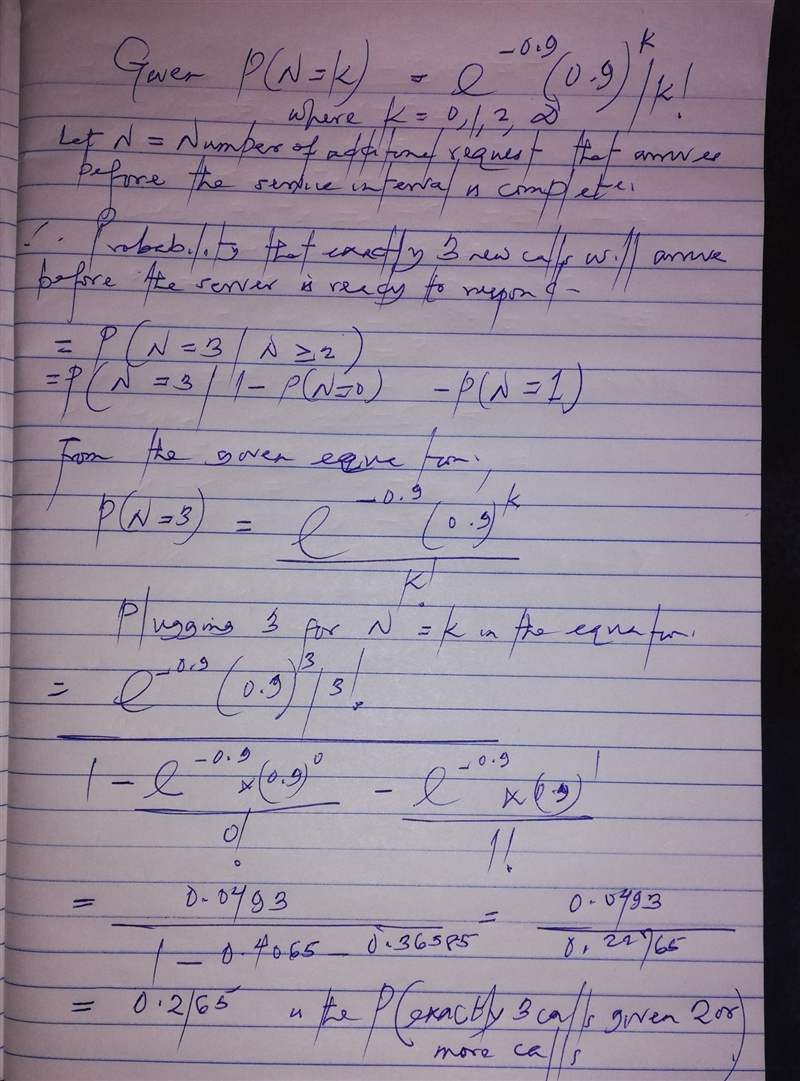 Given P(N=k) = e^-0.9 (0.9)^k / k!
where k = 0, 1, 2, ∞
Let N = Number of additional request that arrive
before the service interval is complete.
∴ Probability that exactly 3 new calls will arrive
before the server is ready to respond -
= P(N=3 / N ≥ 2)
= P(N=3 / 1 - P(N=0) - P(N=1)
From the given equation,
P(N=3) = e^-0.9 (0.9)^k
k!
Plugging 3 for N = k in the equation.
= e^-0.9 (0.9)^3 / 3!
1 - e^-0.9 × (0.9)^0 - e^-0.9 × (0.9)^1
0! 1!
= 0.0493 = 0.0493
1 - 0.4065 - 0.36585 0.22765
= 0.2165 is the P(exactly 3 calls given 2 or
more calls)